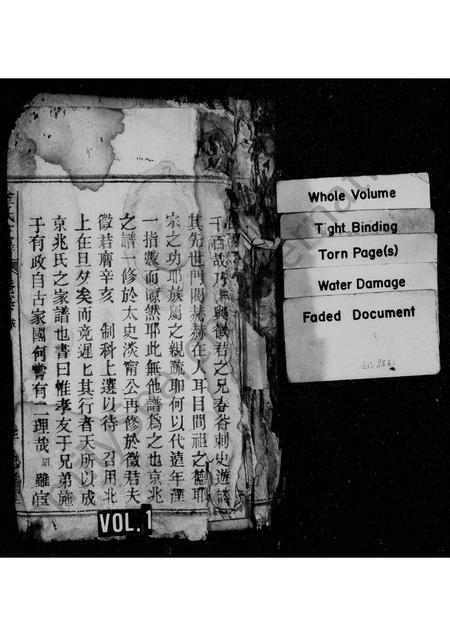 千百故乃與徵君之兄春谷刺史遊
其先世門閥赫赫在人耳目間祖之德耶
宗之功耶族屬之親疏耶何以代遠年湮
一指數而瞭然耶此無他譜爲之也京兆
之譜一修於太史淡甯公再修於徵君夫
徵君膺辛亥 制科上選以待 召用北
上在旦夕矣而竟遲匕其行者天所以成
京兆氏之家譜也書曰惟孝友于兄弟施
于有政自古家國何嘗有二理哉 紹 雖
VOL. 1
Whole Volume
Tight Binding
Torn Page(s)
Water Damage
Faded Document